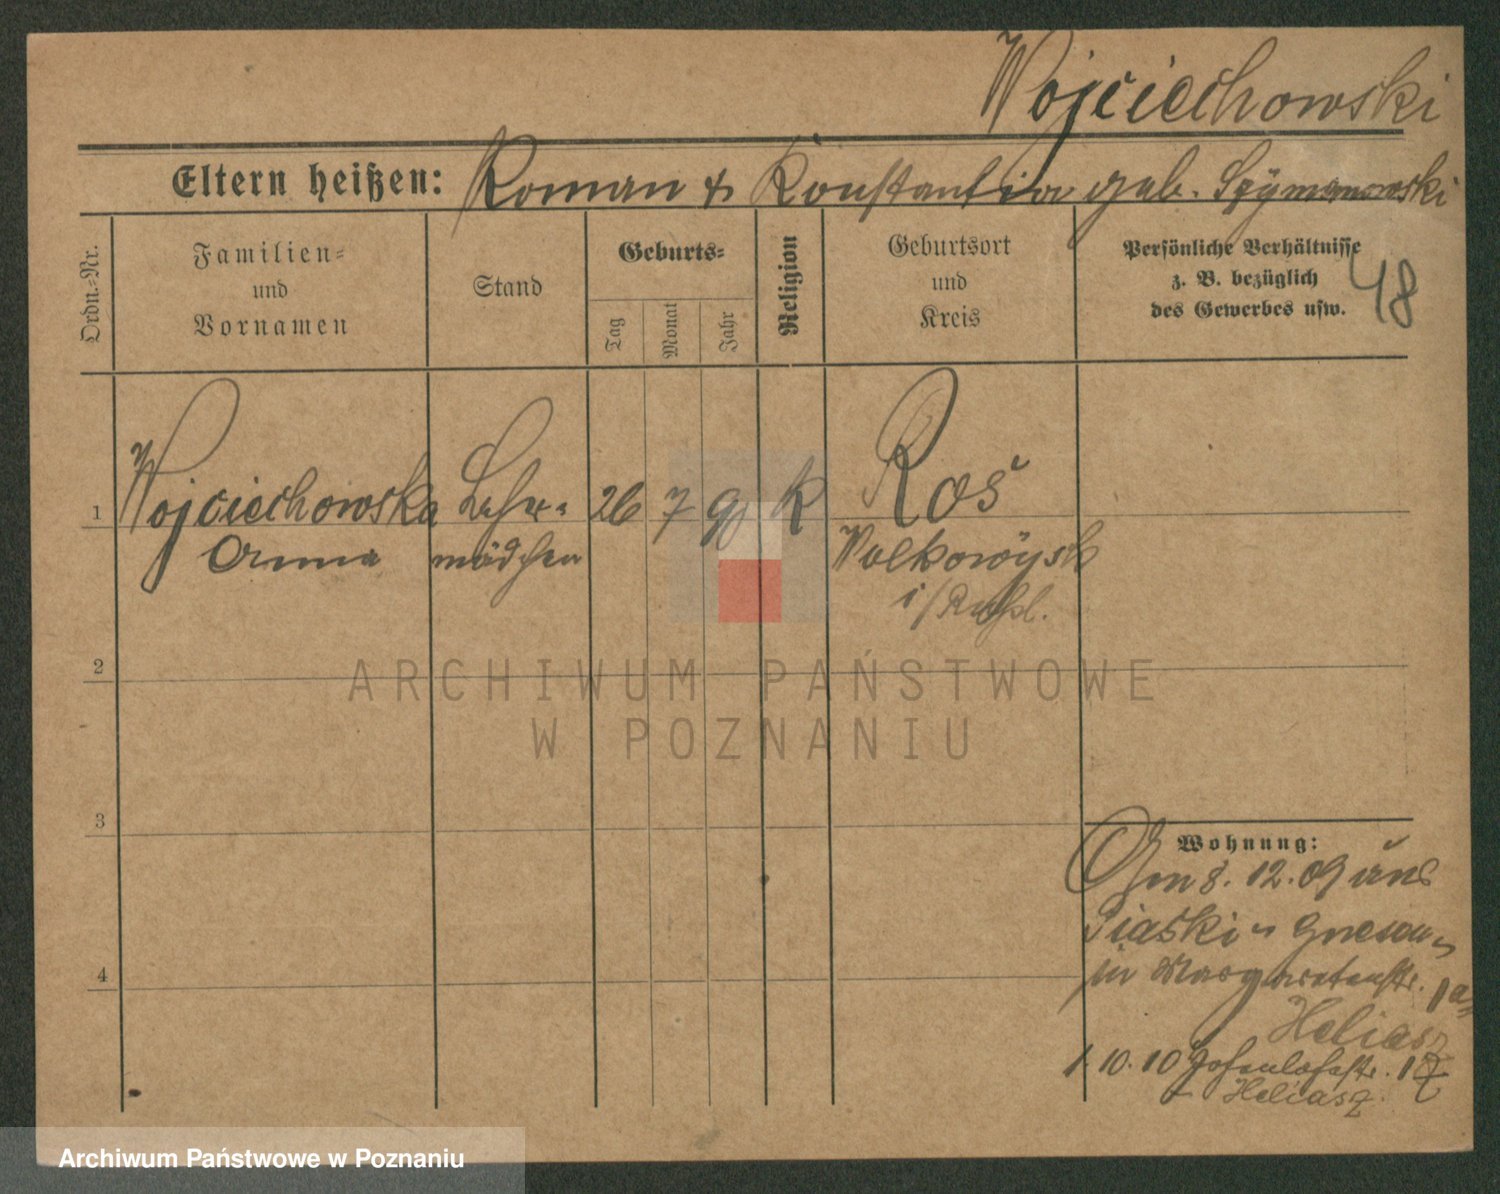 Wojciechowski
Eltern heißen: Roman & Konstantia geb. Szymanowski
Ordn.-Nr.
Familien-
und
Vornamen
Stand
Geburts-
Tag
Monat
Jahr
Religion
Geburtsort
und
Kreis
Persönliche Verhältnisse
z. B. bezüglich
des Gewerbes usw.
48
1
Wojciechowska
Anna
Lehr-
mädchen
26
7
90
k
Roś
Wolkowysk
i/Rußl.
2
3
4
Wohnung:
Am 8. 12. 09 aus
Piaski Gnesen
in Margaretenstr.
Heliasz
1. 10. 10 Hohenlohestr.
Heliasz.
ARCHIWUM PAŃSTWOWE
W POZNANIU
Archiwum Państwowe w Poznaniu